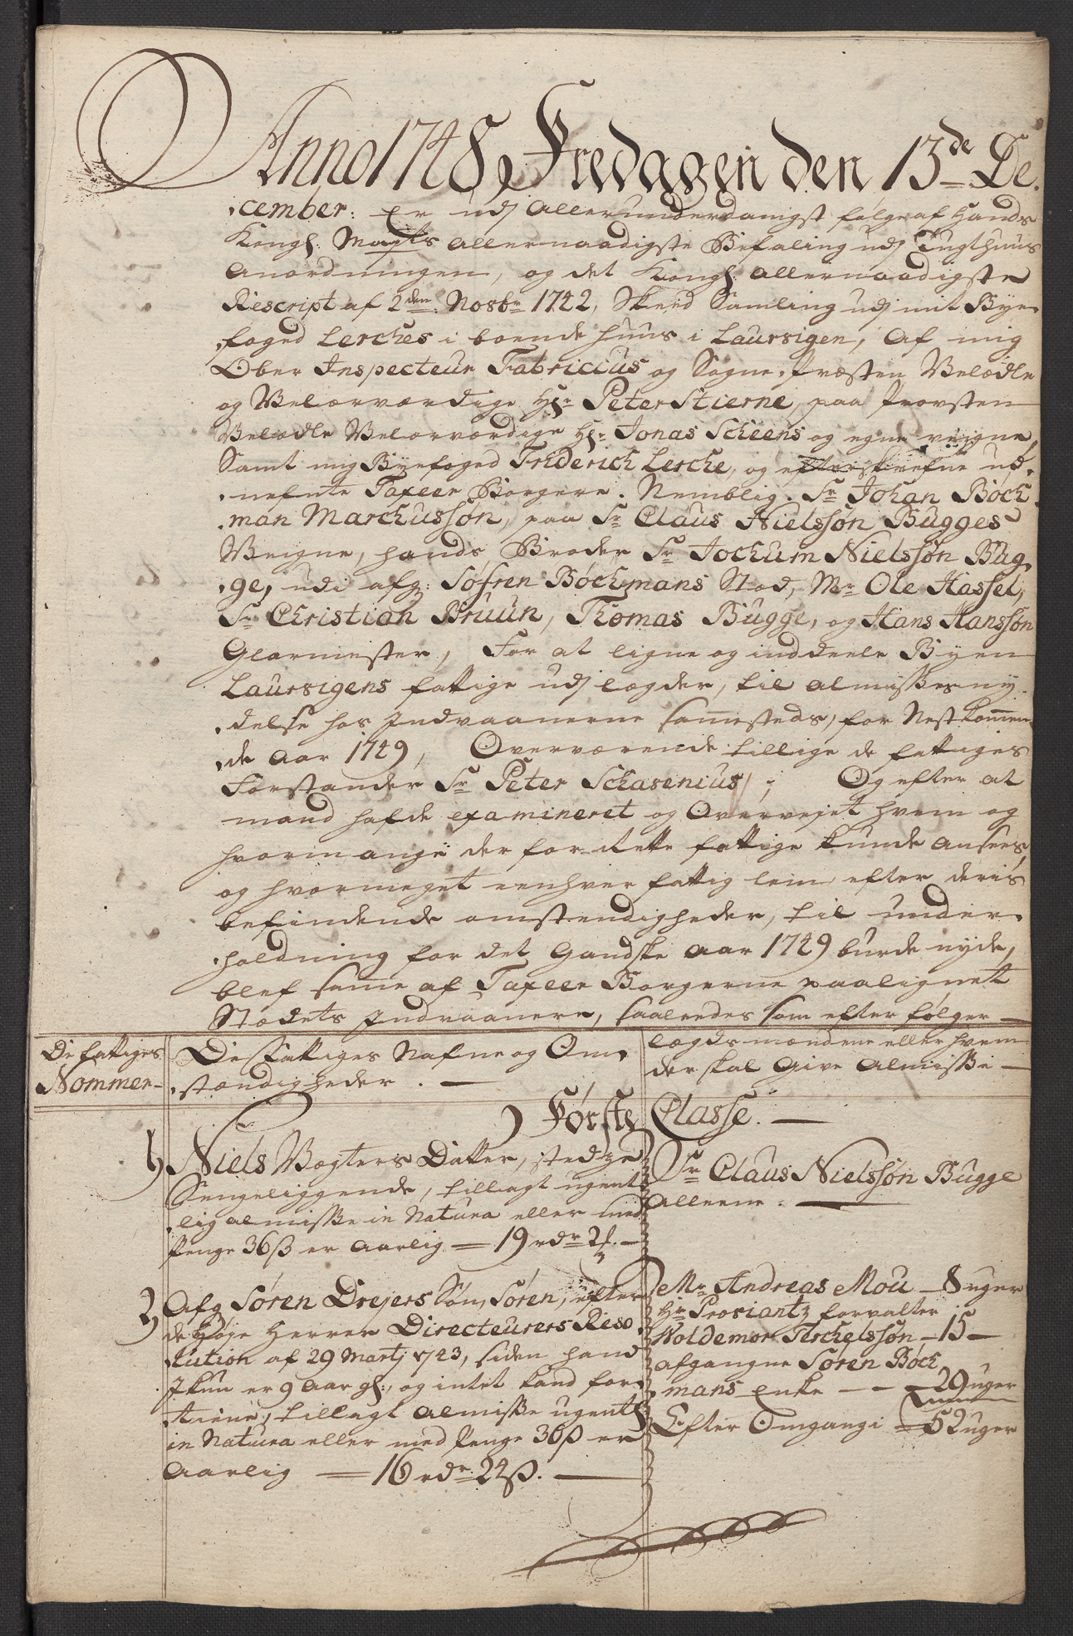 Anno 1748 Fredagen den 13de De-
cember: Er udj Allerunderdanigst følge af Hands
Kongl: Mayts allernaadigste Befaling udj Tugthuus
Anordningen, og det Kongl: allernaadigste
Rescript af 2den Nosbr 1742, Skeed Samling udj mit Bye-
foged Lerches iboende huus i Laursigen, Af mig
Ober Inspecteur Fabriccius og Sogne-Præsten Velædle
og Velærværdige Hr: Peter Stierne, paa Provsten
Velædle Velærværdige Hr: Jonas Scheens og egne veigne,
Samt mig Byefoged Friderich Lerche, og efterskrefne ud-
nefnte Taxeer Borgere. Nemblig. Sr Johan Böch-
man Marchussøn, paa Sr Claus Nielssøn Bugges
Veigne, hands Broder Sr Jochum Nielssøn Bug-
ge, udi afg: Søfren Böchmans Stæd, Mr Ole Hassel,
Sr Christian Bruun, Thomas Bugge, og Hans Hanssøn
Glarmester, For at ligne og inddeele Byen
Laursigens fattige udj lægder, til almisses ny-
delse hos Indvaanerne sammesteds, for Nestkommen-
de Aar 1749, Overværende tillige de fattiges
Forstander Sr Peter Schasenius; Og efter at
mand hafde examineret og Overvejet hvem og
hvormange der for rette fattige kunde ansees,
og hvormeget eenhver fattig lem efter deris
befindende omstendigheder, til under-
holdning for det Gandske Aar 1749 burde nyde,
blef samme af Taxeer Borgerne paalignet
Stædets Indvaanere, saaledes som efter følger
De fattiges
Nommer
Des Fattiges Nafne og Om-
stændigheder.
Lægdsmændene eller hvem
der skal Give Almisse
Første Classe.
1 Niels Vogters Datter, stedze
Sengeliggende, tillagt ugent-
lig almisse in Natura eller med
Penge 36ß er aarlig 19 rdr 2
Sr Claus Nielssøn Bugge
alleene.
2 Afg Søren Drejers Søn, Søren, efter
de Høje Herrer Directeurers Reso-
lution af 29 Martj 1743, siden hand
Ikun er 9 Aar gl:, og intet kand for-
tiene, tillagt Almisse ugentl
in Natura eller med Penge 36ß er
Aarlig 16 rdr 24ß.
Mr Andreas Mou 8 uger
Hr Proviantz forvalter
Woldemor Tischelssøn 15
afgangne Søren Böch-
mans enke 29 uger
Efter Omgang i 52 uger